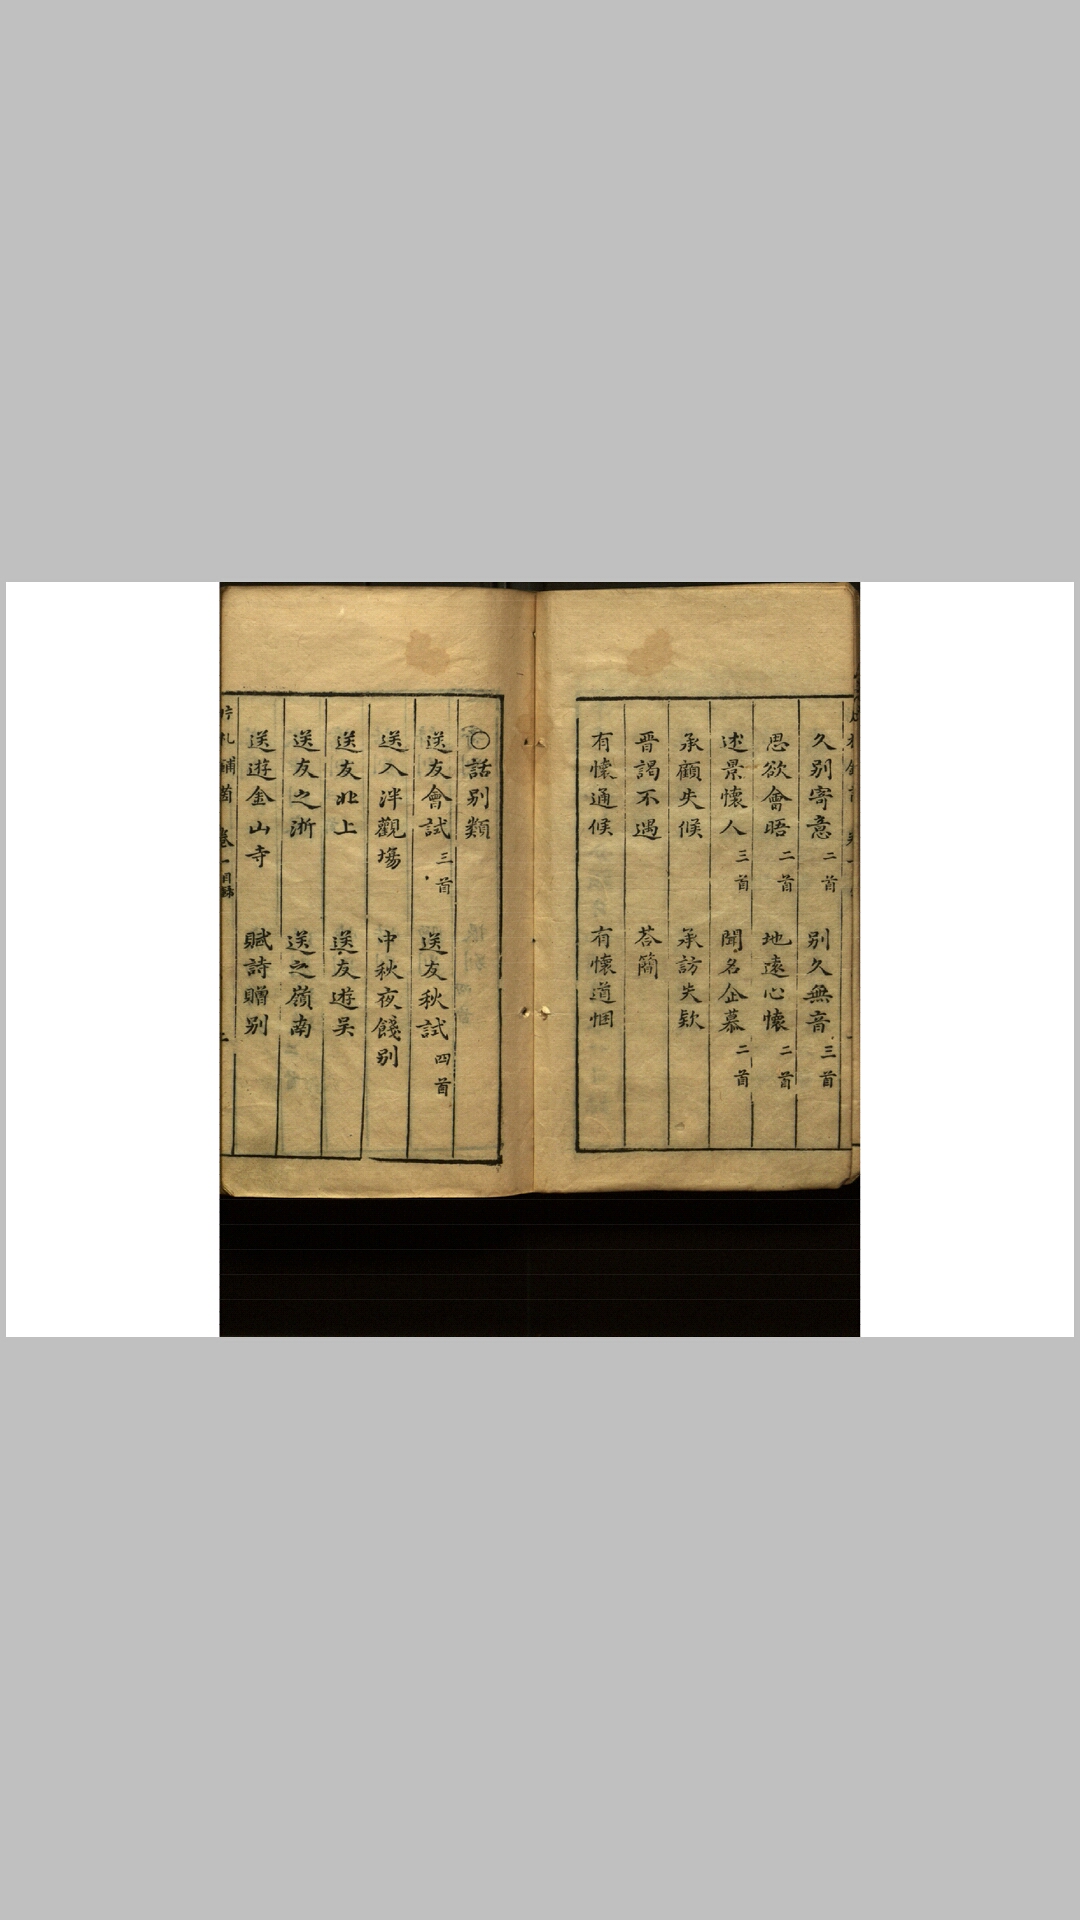 久別寄意 二首 別久無音 三首
思欲會晤 二首 地遠心懷 二首
述景懷人 三首 聞名企慕 二首
承顧失候 承訪失欵
晋謁不遇 荅簡
有懷通候 有懷道悃
○話別類
送友會試 三首 送友秋試 四首
送入泮觀塲 中秋夜餞別
送友北上 送友遊吴
送友之浙 送之嶺南
送遊金山寺 賦詩贈別
卷一 目録